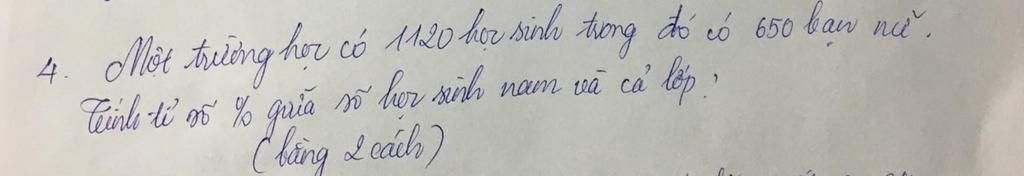 4. Một trường học có 1120 học sinh trong đó có 650 bạn nữ.
Tính tỉ số % giữa số học sinh nam và cả lớp?
(bằng 2 cách)